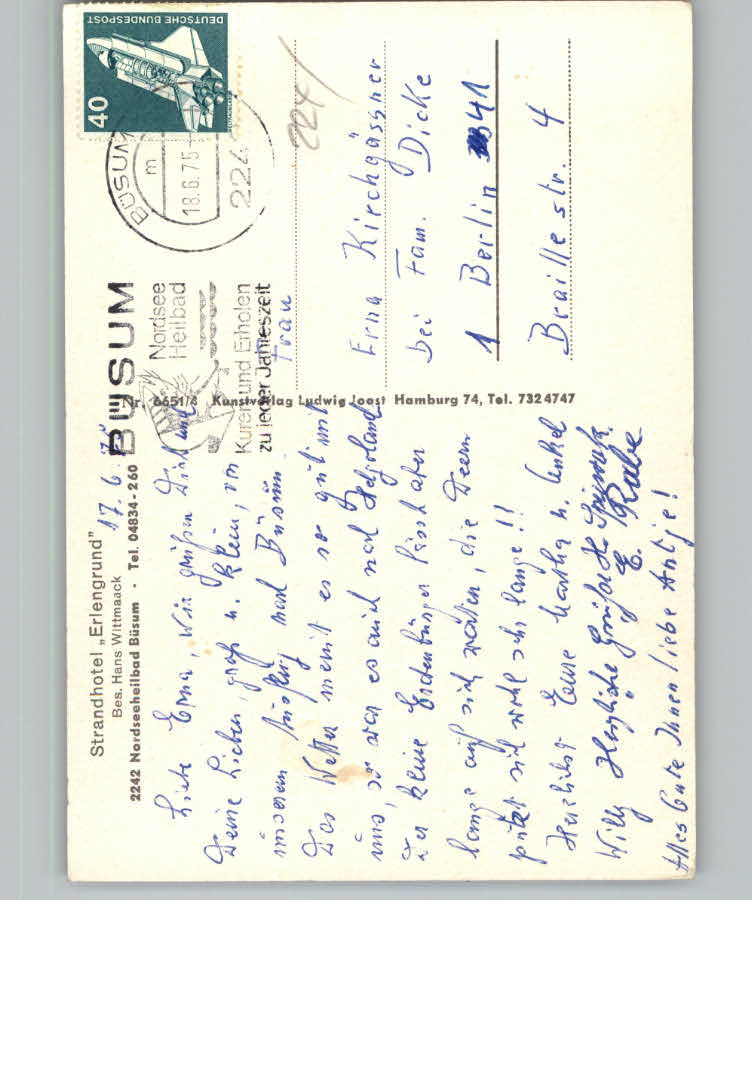 Strandhotel „Erlengrund"
Bes. Hans Wittmaack
2242 Nordseeheilbad Büsum · Tel. 04834-260
17.6.
Liebe Erna, wir grüßen Dich und
Deine Lieben, groß u. klein, von
unserem Ausflug nach Büsum.
Das Wetter meint es so gut mit
uns, so war es auch nach Helgoland
Der kleine Erdenbürger lässt aber
lange auf sich warten, die Deern
putzt sich wohl sehr lange!!
Herzlichst Eure Martha u. Onkel
Willy Herzliche Grüße H.
E. Rabe
Alles Gute Ihnen liebe Antje!
Nr. 6651/4 Kunstverlag Ludwig Joost Hamburg 74, Tel. 7324747
BÜSUM
Nordsee
Heilbad
Kuren und Erholen
zu jeder Jahreszeit
BÜSUM
m
18.6.75
224
40
DEUTSCHE BUNDESPOST
224/
Frau
Erna Kirchgässner
bei Fam. Dicke
1 Berlin 41
Braillestr. 4